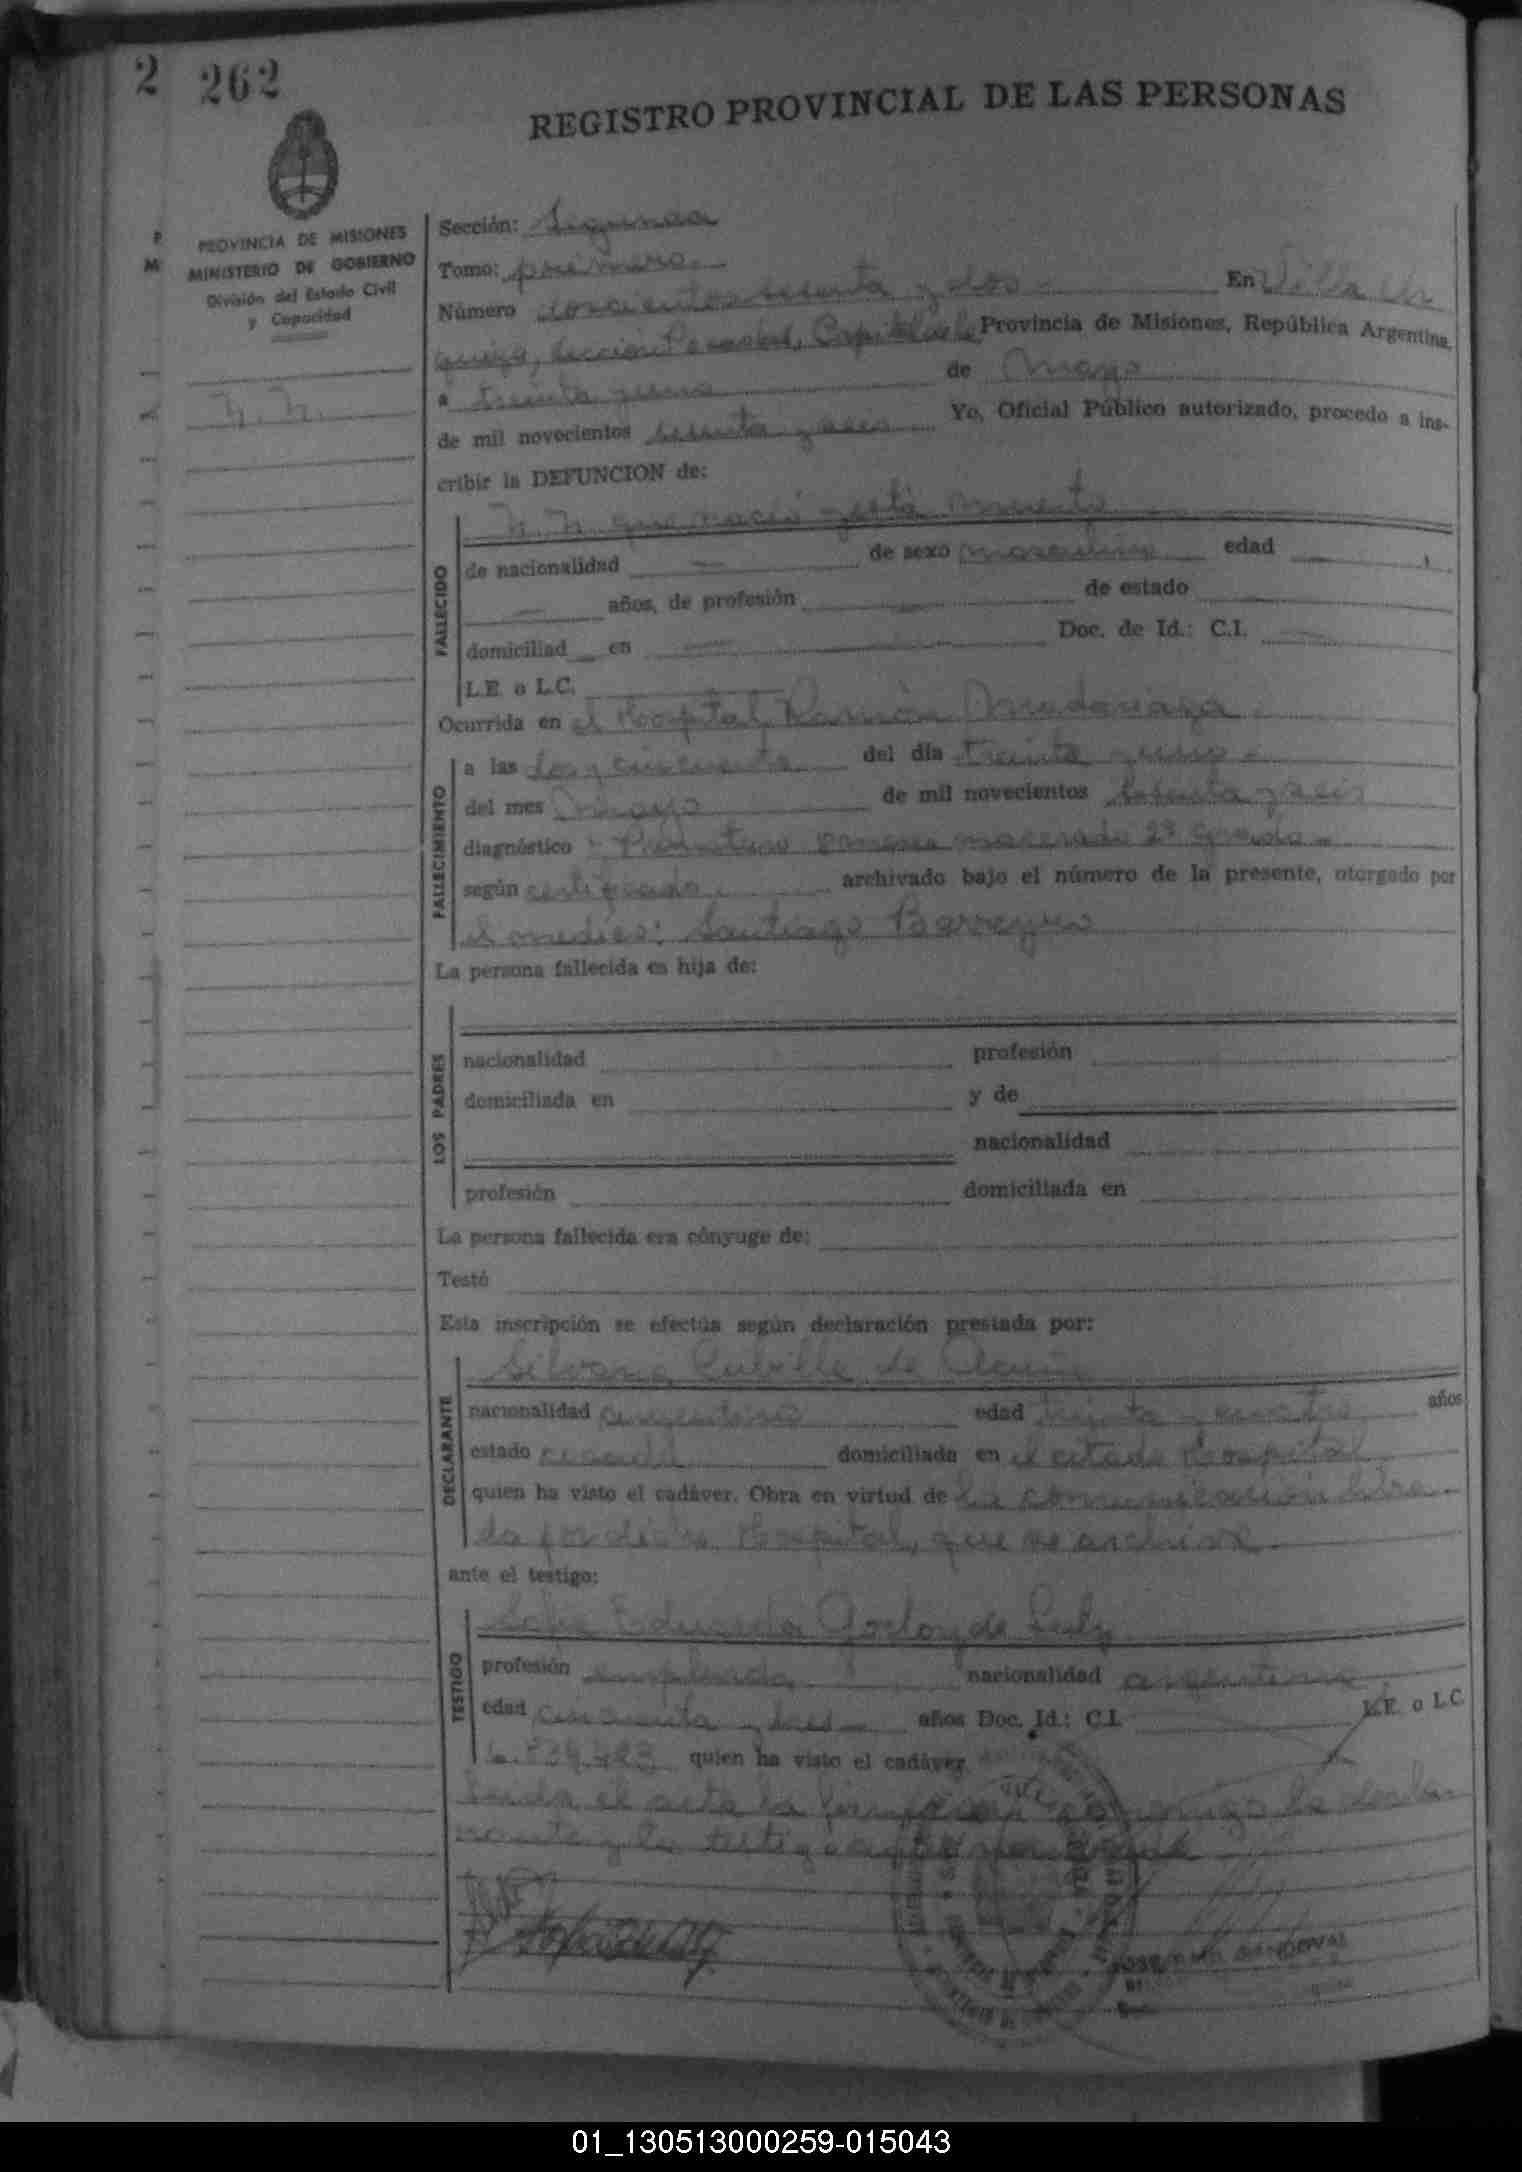 2 262
REGISTRO PROVINCIAL DE LAS PERSONAS
P
M
PROVINCIA DE MISIONES
MINISTERIO DE GOBIERNO
División del Estado Civil
y Capacidad
N. N.
Sección: Segunda
Tomo: primero.
Número doscientos sesenta y dos En Villa Ur
quiza, Sección Posadas, Capital de la Provincia de Misiones, República Argentina,
a treinta y uno de Mayo
de mil novecientos sesenta y seis Yo, Oficial Público autorizado, procedo a ins-
cribir la DEFUNCION de:
FALLECIDO
N. N. que nació y está muerto
de nacionalidad — de sexo masculino edad
años, de profesión de estado
domiciliad en Doc. de Id.: C.I.
L.E. o L.C.
Ocurrida en el Hospital Ramón Madariaga
FALLECIMIENTO
a las dos y cincuenta del día treinta y uno
del mes Mayo de mil novecientos sesenta y seis
diagnóstico Prematuro macerado 2º grado
según certificado archivado bajo el número de la presente, otorgado por
el medico: Santiago Barreyro
La persona fallecida es hija de:
LOS PADRES
nacionalidad profesión
domiciliada en y de
nacionalidad
profesión domiciliada en
La persona fallecida era cónyuge de:
Testó
Esta inscripción se efectúa según declaración prestada por:
DECLARANTE
Silvana de Acuña
nacionalidad argentina edad treinta y cuatro años
estado casada domiciliada en el citado Hospital
quien ha visto el cadáver. Obra en virtud de la comunicación libra
da por dicho Hospital, que se archiva
ante el testigo:
TESTIGO
Sofia Eduarda Godoy de
profesión empleada nacionalidad argentina
edad cincuenta y años Doc. Id.: C.I. L.E. o L.C.
quien ha visto el cadáver
Leida el acta la firman conmigo la decla
rante y la testigo
01_130513000259-015043